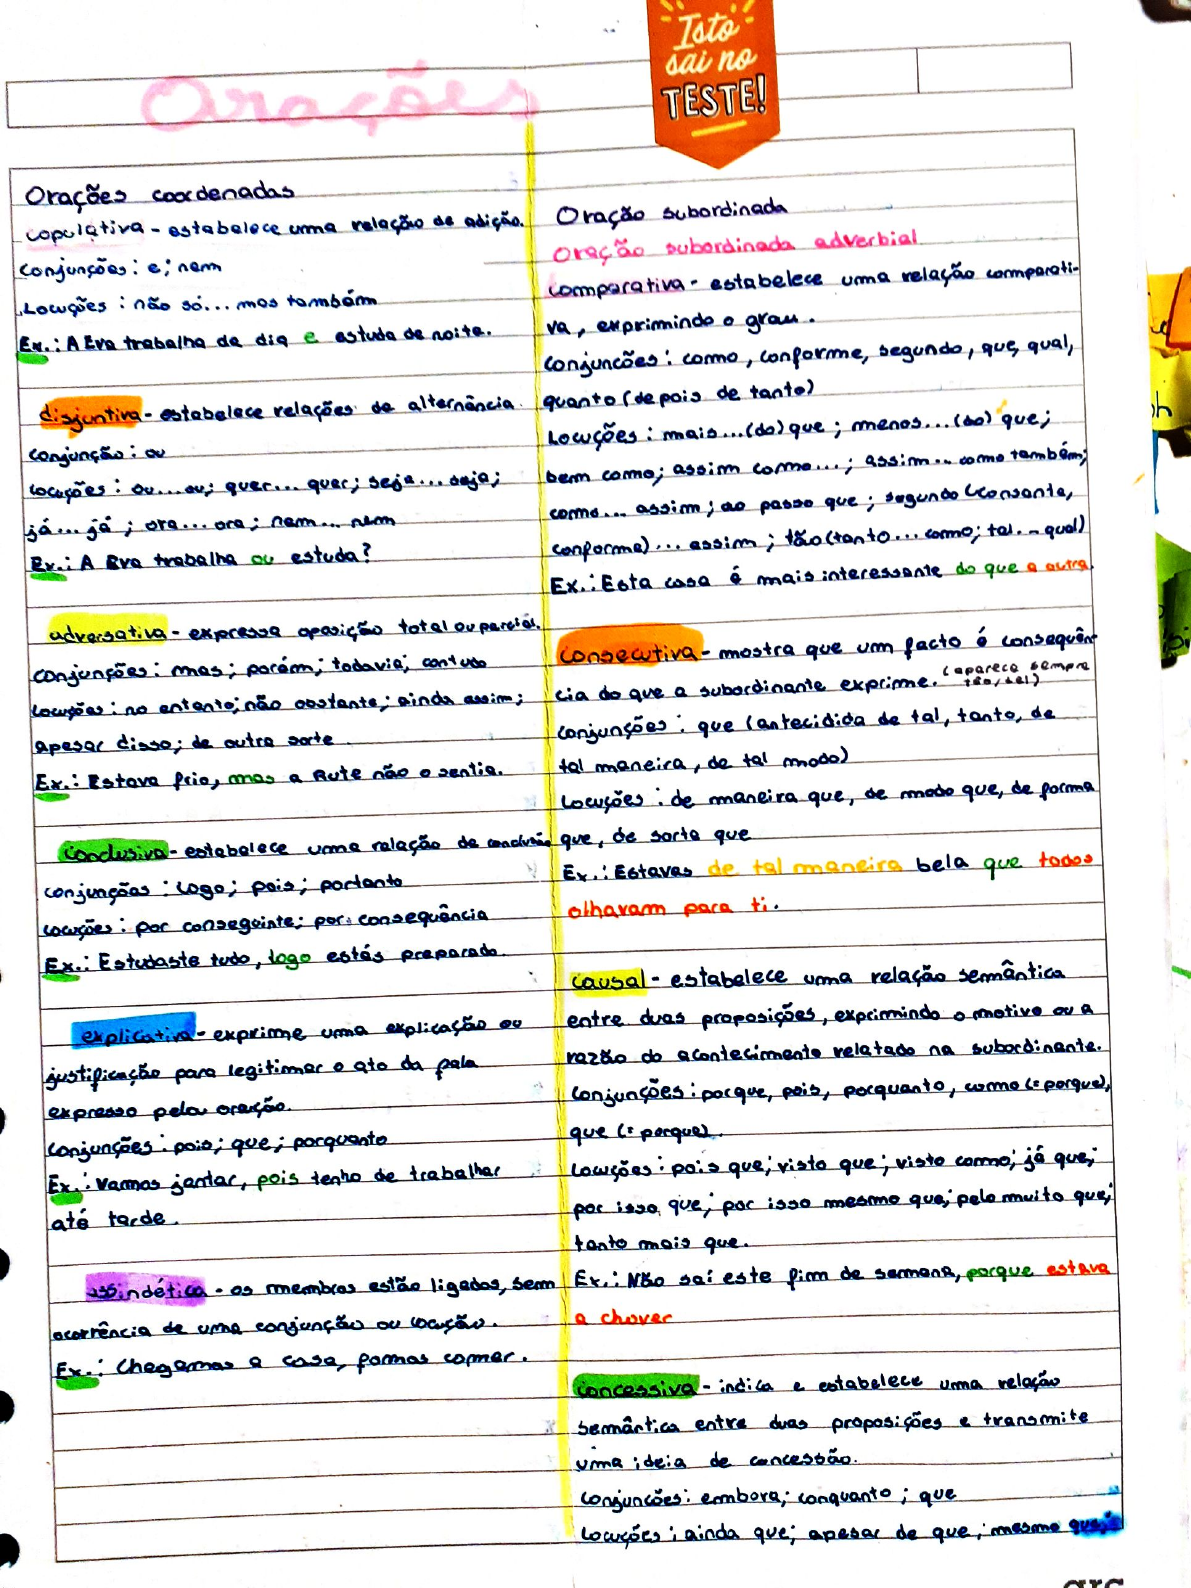 Isto
sai no
TESTE!
Orações
Orações coordenadas
copulativa - estabelece uma relação de adição.
conjunções: e; nem
Locuções: não só... mas também
Ex.: A Eva trabalha de dia e estuda de noite.
disjuntiva - estabelece relações de alternância.
conjunção: ou
locuções: ou...ou; quer... quer; seja... seja;
já... já; ora... ora; nem... nem
Ex.: A Eva trabalha ou estuda?
adversativa - expressa oposição total ou parcial.
conjunções: mas; porém; todavia; contudo
locuções: no entanto; não obstante; ainda assim;
apesar disso; de outra sorte
Ex.: Estava frio, mas a Rute não o sentia.
conclusiva - estabelece uma relação de conclusão
conjunções: logo; pois; portanto
locuções: por conseguinte; por consequência
Ex.: Estudaste tudo, logo estás preparado.
explicativa - exprime uma explicação ou
justificação para legitimar o ato da fala
expresso pela oração.
conjunções: pois; que; porquanto
Ex.: Vamos jantar, pois tenho de trabalhar
até tarde.
assindética - os membros estão ligados, sem
ocorrência de uma conjunção ou locução.
Ex.: Chegamos a casa, fomos comer.
Oração subordinada
Oração subordinada adverbial
comparativa - estabelece uma relação comparati-
va, exprimindo o grau.
conjuncões: como, conforme, segundo, que, qual,
quanto (depois de tanto)
Locuções: mais...(do) que; menos...(do) que;
bem como; assim como...; assim... como também;
como... assim; ao passo que; segundo (consante,
conforme)... assim; tão (tanto... como; tal... qual)
Ex.: Esta casa é mais interessante do que a outra.
consecutiva - mostra que um facto é consequên
cia do que a subordinante exprime. (aparece sempre
tão, tal)
conjunções: que (antecidida de tal, tanto, de
tal maneira, de tal modo)
Locuções: de maneira que, de modo que, de forma
que, de sorte que
Ex.: Estavas de tal maneira bela que todos
olharam para ti.
causal - estabelece uma relação semântica
entre duas proposições, exprimindo o motivo ou a
razão do acontecimento relatado na subordinante.
conjunções: porque, pois, porquanto, como (= porque),
que (= porque).
locuções: pois que; visto que; visto como; já que;
por isso que; por isso mesmo que; pelo muito que;
tanto mais que.
Ex.: Não saí este fim de semana, porque estava
a chover
concessiva - indica e estabelece uma relação
semântica entre duas proposições e transmite
uma ideia de concessão.
conjuncões: embora; conquanto; que
locuções: ainda que; apesar de que; mesmo que;